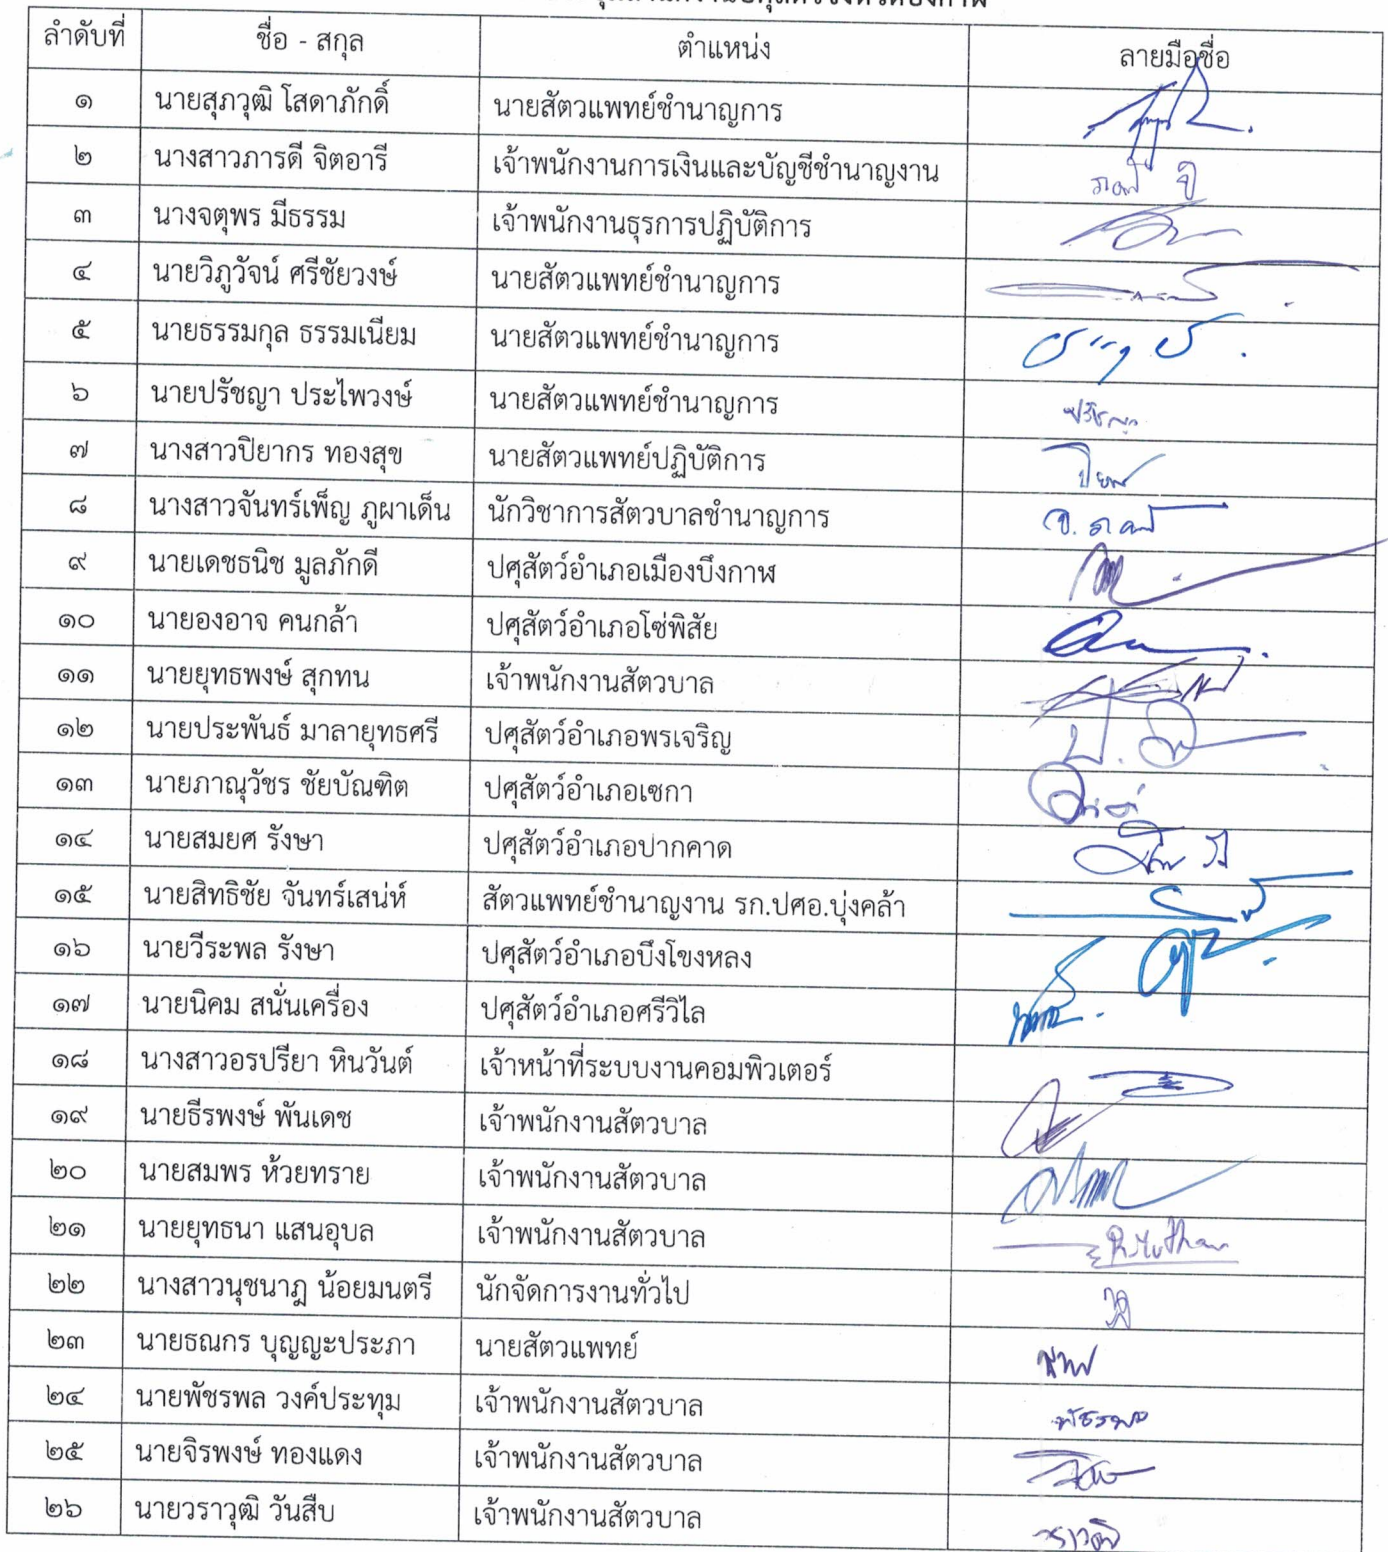 ลำดับที่ ชื่อ - สกุล ตำแหน่ง ลายมือชื่อ
๑ นายสุภวุฒิ โสดาภักดิ์ นายสัตวแพทย์ชำนาญการ
๒ นางสาวภารดี จิตอารี เจ้าพนักงานการเงินและบัญชีชำนาญงาน
๓ นางจตุพร มีธรรม เจ้าพนักงานธุรการปฏิบัติการ
๔ นายวิภูวัจน์ ศรีชัยวงษ์ นายสัตวแพทย์ชำนาญการ
๕ นายธรรมกุล ธรรมเนียม นายสัตวแพทย์ชำนาญการ
๖ นายปรัชญา ประไพวงษ์ นายสัตวแพทย์ชำนาญการ ปรัชญา
๗ นางสาวปิยากร ทองสุข นายสัตวแพทย์ปฏิบัติการ
๘ นางสาวจันทร์เพ็ญ ภูผาเด็น นักวิชาการสัตวบาลชำนาญการ
๙ นายเดชธนิช มูลภักดี ปศุสัตว์อำเภอเมืองบึงกาฬ
๑๐ นายองอาจ คนกล้า ปศุสัตว์อำเภอโซ่พิสัย
๑๑ นายยุทธพงษ์ สุกทน เจ้าพนักงานสัตวบาล
๑๒ นายประพันธ์ มาลายุทธศรี ปศุสัตว์อำเภอพรเจริญ
๑๓ นายภาณุวัชร ชัยบัณฑิต ปศุสัตว์อำเภอเซกา
๑๔ นายสมยศ รังษา ปศุสัตว์อำเภอปากคาด
๑๕ นายสิทธิชัย จันทร์เสน่ห์ สัตวแพทย์ชำนาญงาน รก.ปศอ.บุ่งคล้า
๑๖ นายวีระพล รังษา ปศุสัตว์อำเภอบึงโขงหลง
๑๗ นายนิคม สนั่นเครื่อง ปศุสัตว์อำเภอศรีวิไล
๑๘ นางสาวอรปรียา หินวันต์ เจ้าหน้าที่ระบบงานคอมพิวเตอร์
๑๙ นายธีรพงษ์ พันเดช เจ้าพนักงานสัตวบาล
๒๐ นายสมพร ห้วยทราย เจ้าพนักงานสัตวบาล
๒๑ นายยุทธนา แสนอุบล เจ้าพนักงานสัตวบาล
๒๒ นางสาวนุชนาฎ น้อยมนตรี นักจัดการงานทั่วไป
๒๓ นายธณกร บุญญะประภา นายสัตวแพทย์
๒๔ นายพัชรพล วงค์ประทุม เจ้าพนักงานสัตวบาล พัชรพล
๒๕ นายจิรพงษ์ ทองแดง เจ้าพนักงานสัตวบาล
๒๖ นายวราวุฒิ วันสืบ เจ้าพนักงานสัตวบาล วราวุฒิ